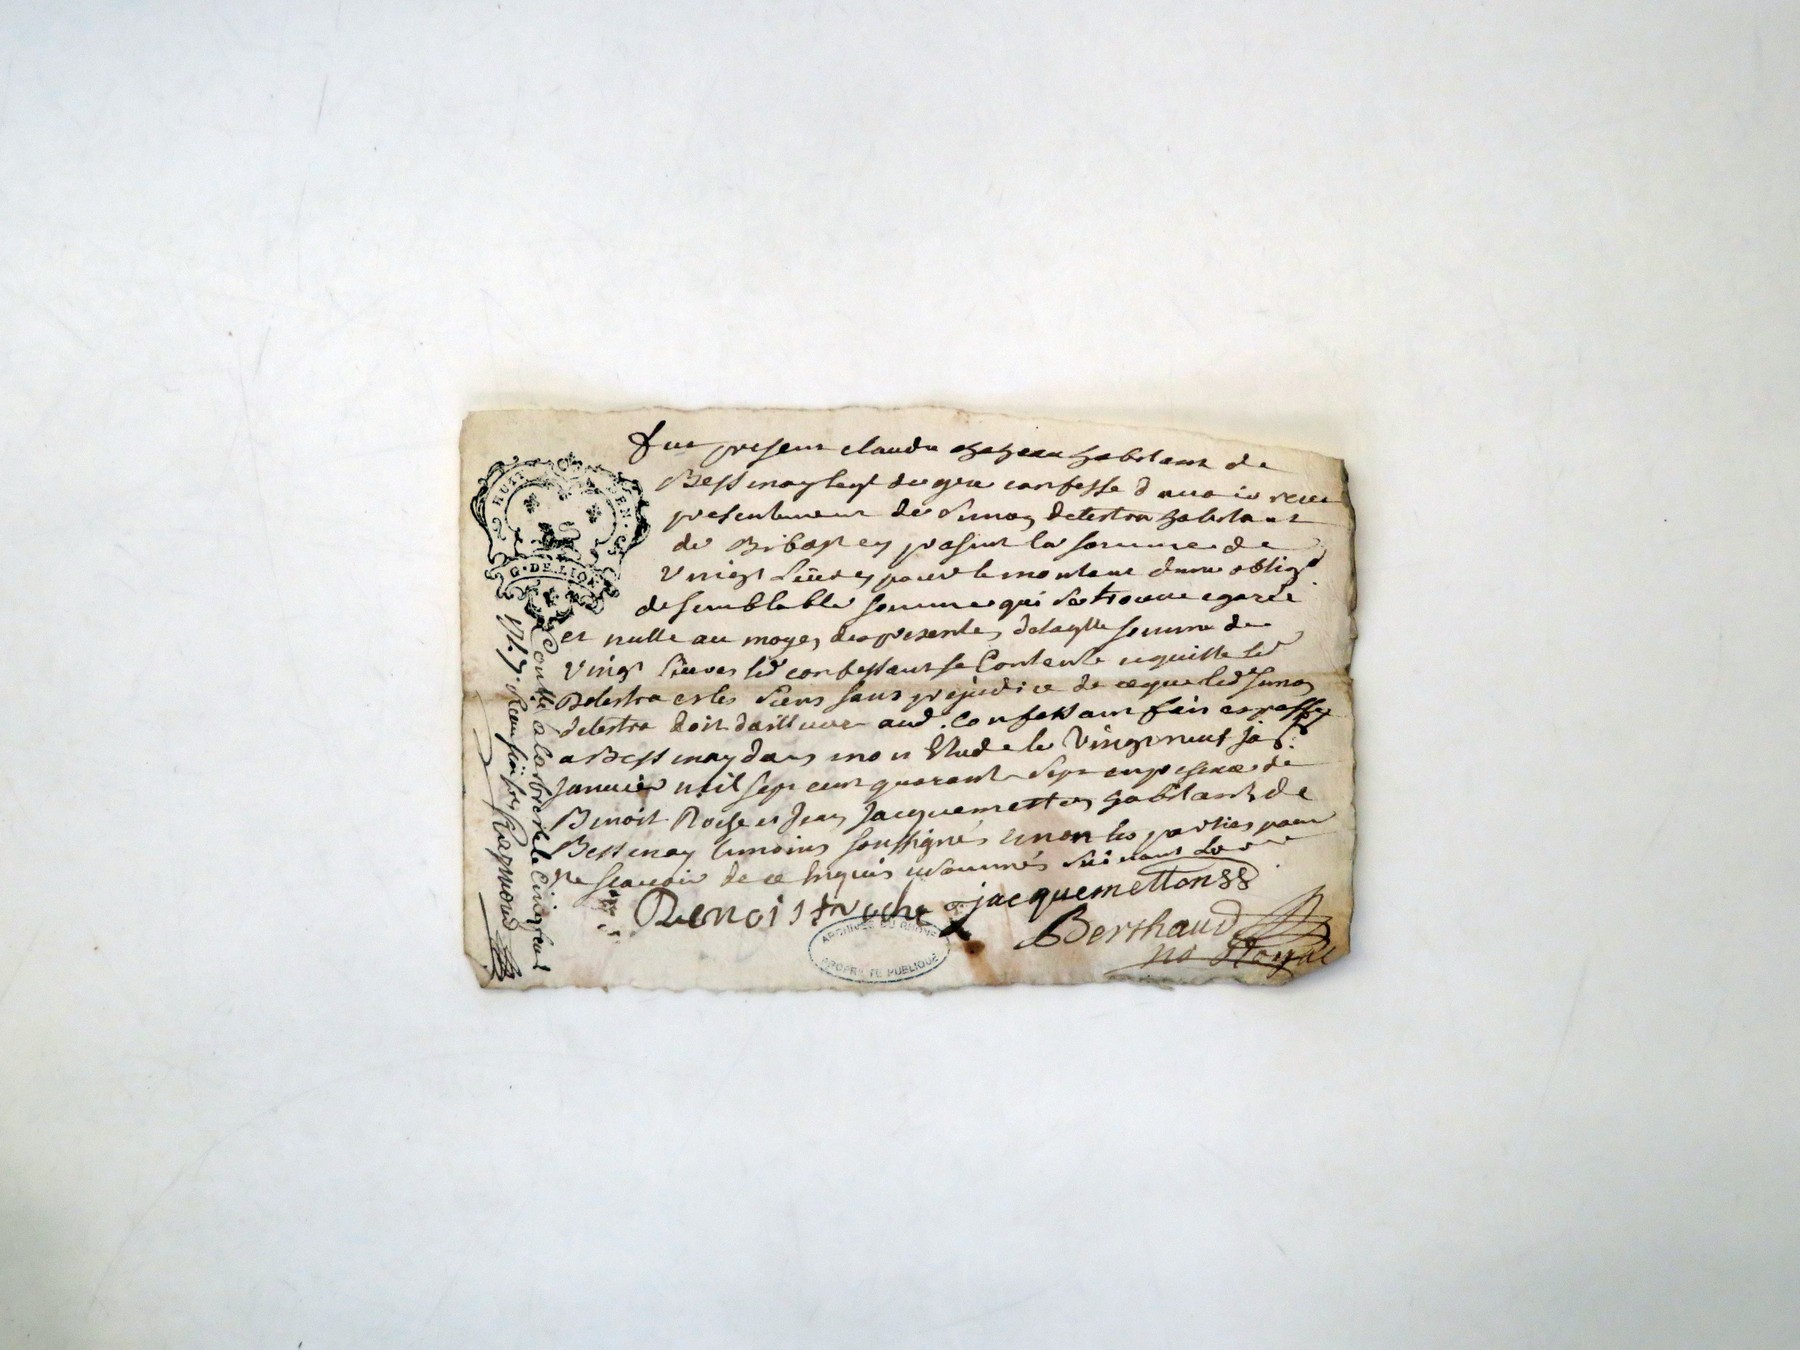 HUIT DEN.
G. DE LION
fut present claude habitant de
Bessenay lequel de gre confesse d avoir receu
presentement de Simon delestra habitant
de present la somme de
Vingt Livres pour le montant dune oblig.
de semblable somme qui se trouve egarée
et nulle au moyen des presentes delaqlle somme de
Vingt Livres led confessant se Contente en quitte led
Delestra et les siens sans prejudice de ceque led Simon
delestra doit dailleurs aud. Confessant fait et passé
a Bessenay dans mon Etude le Vingt neuf
Janvier mil sept cent quarante sept en presence de
Benoit Roche et Jean Jacquemetton habitants de
Bessenay temoins soussignés et non les parties pour
ne scavoir de ce enquis et sommés suivant Lordre
Benoist roche j jacquemetton
Berthaud
no Royal
Contlé a Larbresle le Cinq feuri
Raymond
ARCHIVES DU RHONE
PROPRIETE PUBLIQUE